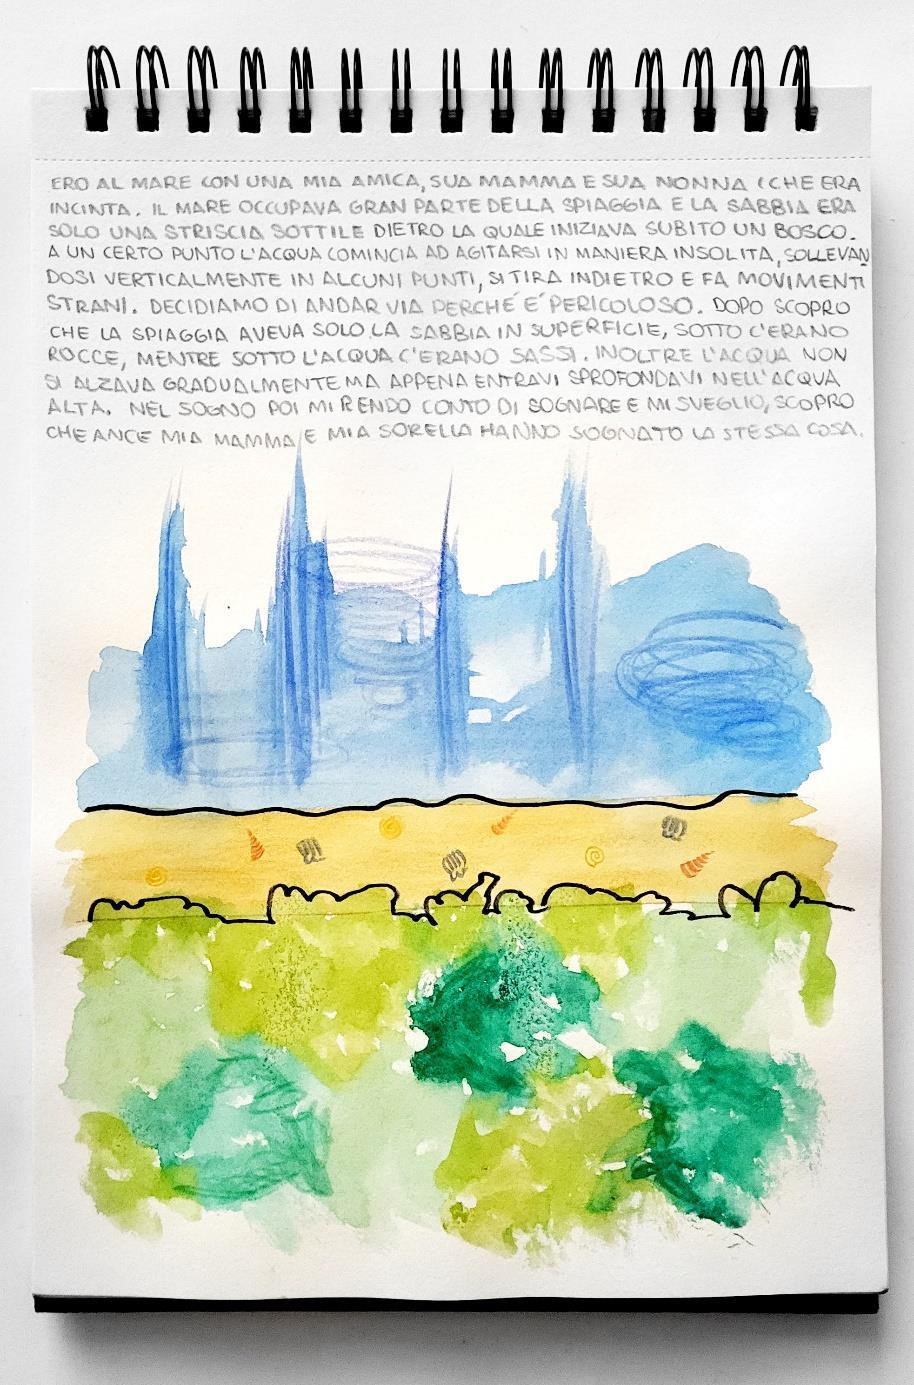 ERO AL MARE CON UNA MIA AMICA, SUA MAMMA E SUA NONNA (CHE ERA
INCINTA. IL MARE OCCUPAVA GRAN PARTE DELLA SPIAGGIA E LA SABBIA ERA
SOLO UNA STRISCIA SOTTILE DIETRO LA QUALE INIZIAVA SUBITO UN BOSCO.
A UN CERTO PUNTO L'ACQUA COMINCIA AD AGITARSI IN MANIERA INSOLITA, SOLLEVAN
DOSI VERTICALMENTE IN ALCUNI PUNTI, SI TIRA INDIETRO E FA MOVIMENTI
STRANI. DECIDIAMO DI ANDAR VIA PERCHÉ É PERICOLOSO. DOPO SCOPRO
CHE LA SPIAGGIA AVEVA SOLO LA SABBIA IN SUPERFICIE, SOTTO C'ERANO
ROCCE, MENTRE SOTTO L'ACQUA C'ERANO SASSI. INOLTRE L'ACQUA NON
SI ALZAVA GRADUALMENTE MA APPENA ENTRAVI SPROFONDAVI NELL'ACQUA
ALTA. NEL SOGNO POI MI RENDO CONTO DI SOGNARE E MI SVEGLIO, SCOPRO
CHE ANCE MIA MAMMA E MIA SORELLA HANNO SOGNATO LA STESSA COSA.